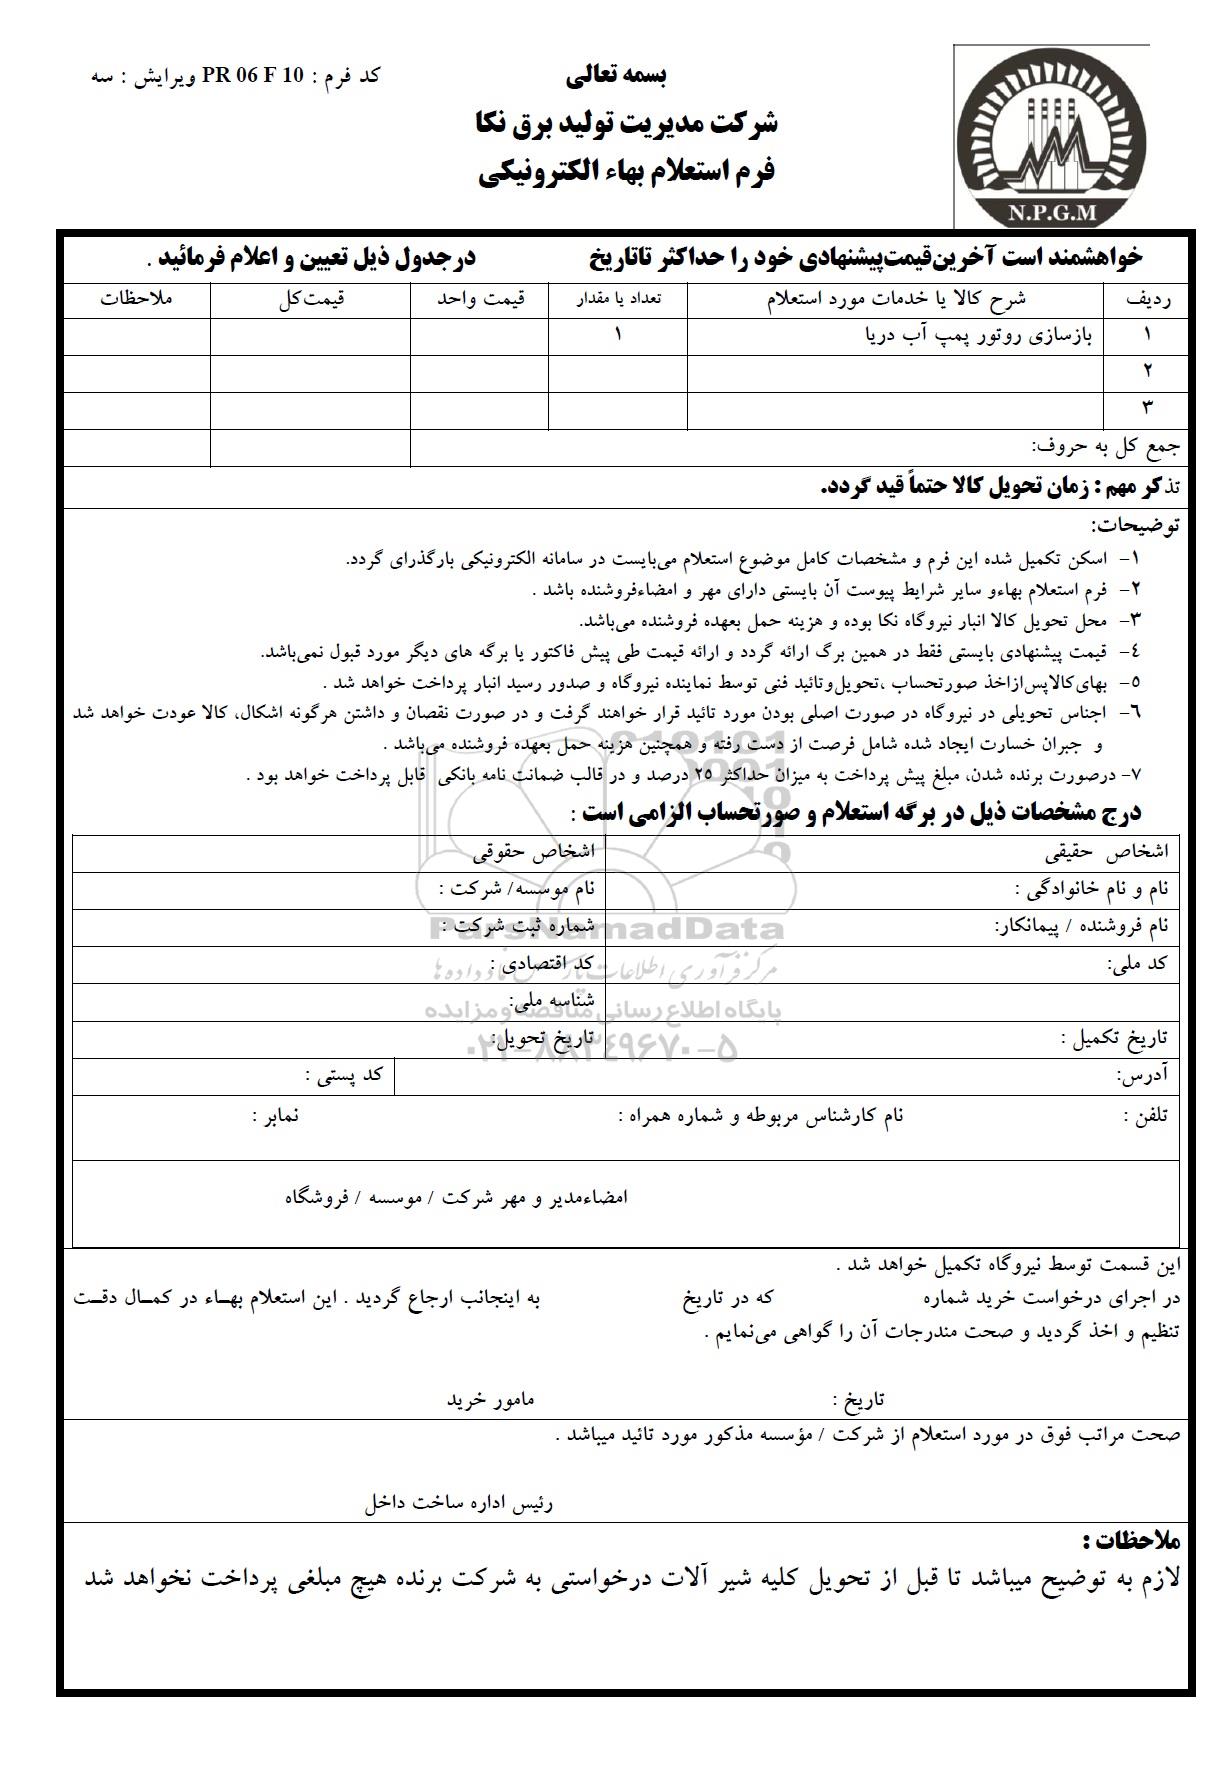 بسمه تعالی
کد فرم : PR 06 F 10 ویرایش : سه
شرکت مدیریت تولید برق نکا
فرم استعلام بهاء الکترونیکی
N.P.G.M
خواهشمند است آخرین‌قیمت‌پیشنهادی خود را حداکثر تاتاریخ درجدول ذیل تعیین و اعلام فرمائید .
ردیف شرح کالا یا خدمات مورد استعلام تعداد یا مقدار قیمت واحد قیمت‌کل ملاحظات
۱ بازسازی روتور پمپ آب دریا ۱
۲
۳
جمع کل به حروف:
تذکر مهم : زمان تحویل کالا حتماً قید گردد.
توضیحات:
۱- اسکن تکمیل شده این فرم و مشخصات کامل موضوع استعلام می‌بایست در سامانه الکترونیکی بارگذرای گردد.
۲- فرم استعلام بهاءو سایر شرایط پیوست آن بایستی دارای مهر و امضاءفروشنده باشد .
۳- محل تحویل کالا انبار نیروگاه نکا بوده و هزینه حمل بعهده فروشنده می‌باشد.
٤- قیمت پیشنهادی بایستی فقط در همین برگ ارائه گردد و ارائه قیمت طی پیش فاکتور یا برگه های دیگر مورد قبول نمی‌باشد.
۵- بهای‌کالاپس‌ازاخذ صورتحساب ،تحویل‌وتائید فنی توسط نماینده نیروگاه و صدور رسید انبار پرداخت خواهد شد .
٦- اجناس تحویلی در نیروگاه در صورت اصلی بودن مورد تائید قرار خواهند گرفت و در صورت نقصان و داشتن هرگونه اشکال، کالا عودت خواهد شد
و جبران خسارت ایجاد شده شامل فرصت از دست رفته و همچنین هزینه حمل بعهده فروشنده می‌باشد .
۷- درصورت برنده شدن، مبلغ پیش پرداخت به میزان حداکثر ۲۵ درصد و در قالب ضمانت نامه بانکی قابل پرداخت خواهد بود .
درج مشخصات ذیل در برگه استعلام و صورتحساب الزامی است :
اشخاص حقیقی اشخاص حقوقی
نام و نام خانوادگی : نام موسسه/ شرکت :
نام فروشنده / پیمانکار: شماره ثبت شرکت :
کد ملی: کد اقتصادی :
شناسه ملی:
تاریخ تکمیل : تاریخ تحویل:
آدرس: کد پستی :
تلفن : نام کارشناس مربوطه و شماره همراه : نمابر :
امضاءمدیر و مهر شرکت / موسسه / فروشگاه
این قسمت توسط نیروگاه تکمیل خواهد شد .
در اجرای درخواست خرید شماره که در تاریخ به اینجانب ارجاع گردید . این استعلام بهـاء در کمـال دقـت
تنظیم و اخذ گردید و صحت مندرجات آن را گواهی می‌نمایم .
تاریخ : مامور خرید
صحت مراتب فوق در مورد استعلام از شرکت / مؤسسه مذکور مورد تائید میباشد .
رئیس اداره ساخت داخل
ملاحظات :
لازم به توضیح میباشد تا قبل از تحویل کلیه شیر آلات درخواستی به شرکت برنده هیچ مبلغی پرداخت نخواهد شد
ParsNamadData
پایگاه اطلاع رسانی مناقصه و مزایده
۰۲۱-۸۸۳٤۹٦۷۰-۵